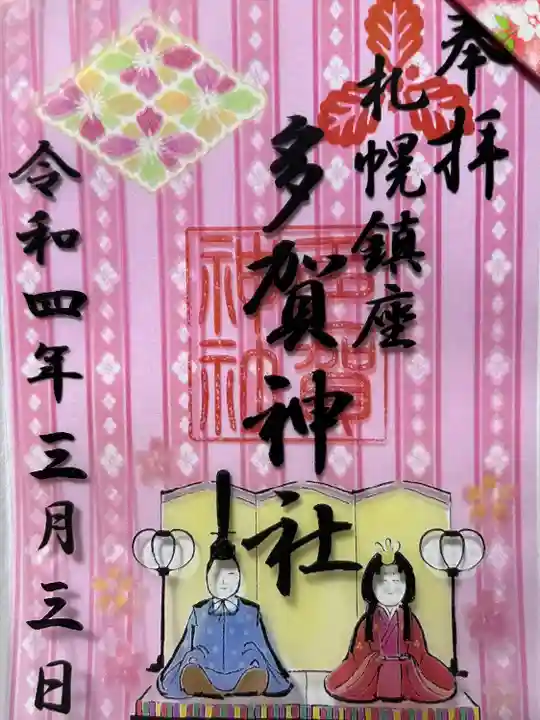 奉拝
札幌鎮座
多賀神社
令和四年三月三日